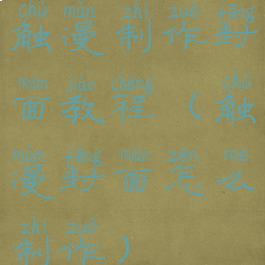 chù màn zhì zuò fēng
触漫制作封
miàn jiào chéng chù
面教程（触
màn fēng miàn zěn me
漫封面怎么
zhì zuò
制作）